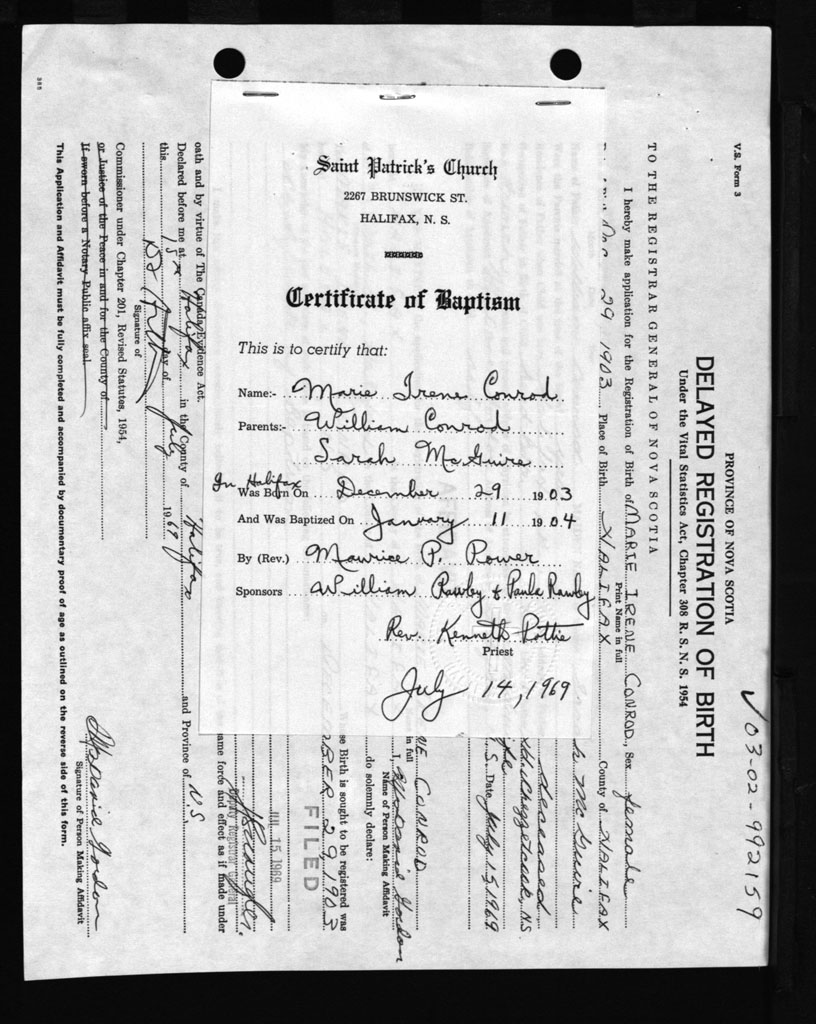 Saint Patrick's Church
2267 BRUNSWICK ST.
HALIFAX, N. S.
Certificate of Baptism
This is to certify that:
Name:- Marie Irene Conrod
Parents:- William Conrod
Sarah McGuire
In Halifax
Was Born On December 29 1903
And Was Baptized On January 11 1904
By (Rev.) Maurice P. Power
Sponsors William Rawby & Paula Rawby
Rev. Kenneth Pottie
Priest
July 14, 1969
03-02-992159
V.S. Form 3
PROVINCE OF NOVA SCOTIA
DELAYED REGISTRATION OF BIRTH
Under the Vital Statistics Act, Chapter 308 R. S. N. S. 1954
TO THE REGISTRAR GENERAL OF NOVA SCOTIA
I hereby make application for the Registration of Birth of MARIE IRENE CONROD, Sex female
Print Name in full
Dec 29 1903 Place of Birth HALIFAX County of HALIFAX
McGuire
deceased
Chezzetcook, N.S.
S. Date July 15, 1969
NE CONROD
in full
I, Mrs David Gordon
Name of Person Making Affidavit
do solemnly declare:
se Birth is sought to be registered was
DECEMBER 29 1903
FILED
JUL 15 1969
Deputy Registrar General
ame force and effect as if made under
oath and by virtue of The Canada Evidence Act.
Declared before me at Halifax in the County of Halifax and Province of N.S
this 15 day of July 1969
Signature of
Commissioner under Chapter 201, Revised Statutes, 1954,
or Justice of the Peace in and for the County of
If sworn before a Notary Public affix seal.
Mrs David Gordon
Signature of Person Making Affidavit
This Application and Affidavit must be fully completed and accompanied by documentary proof of age as outlined on the reverse side of this form.